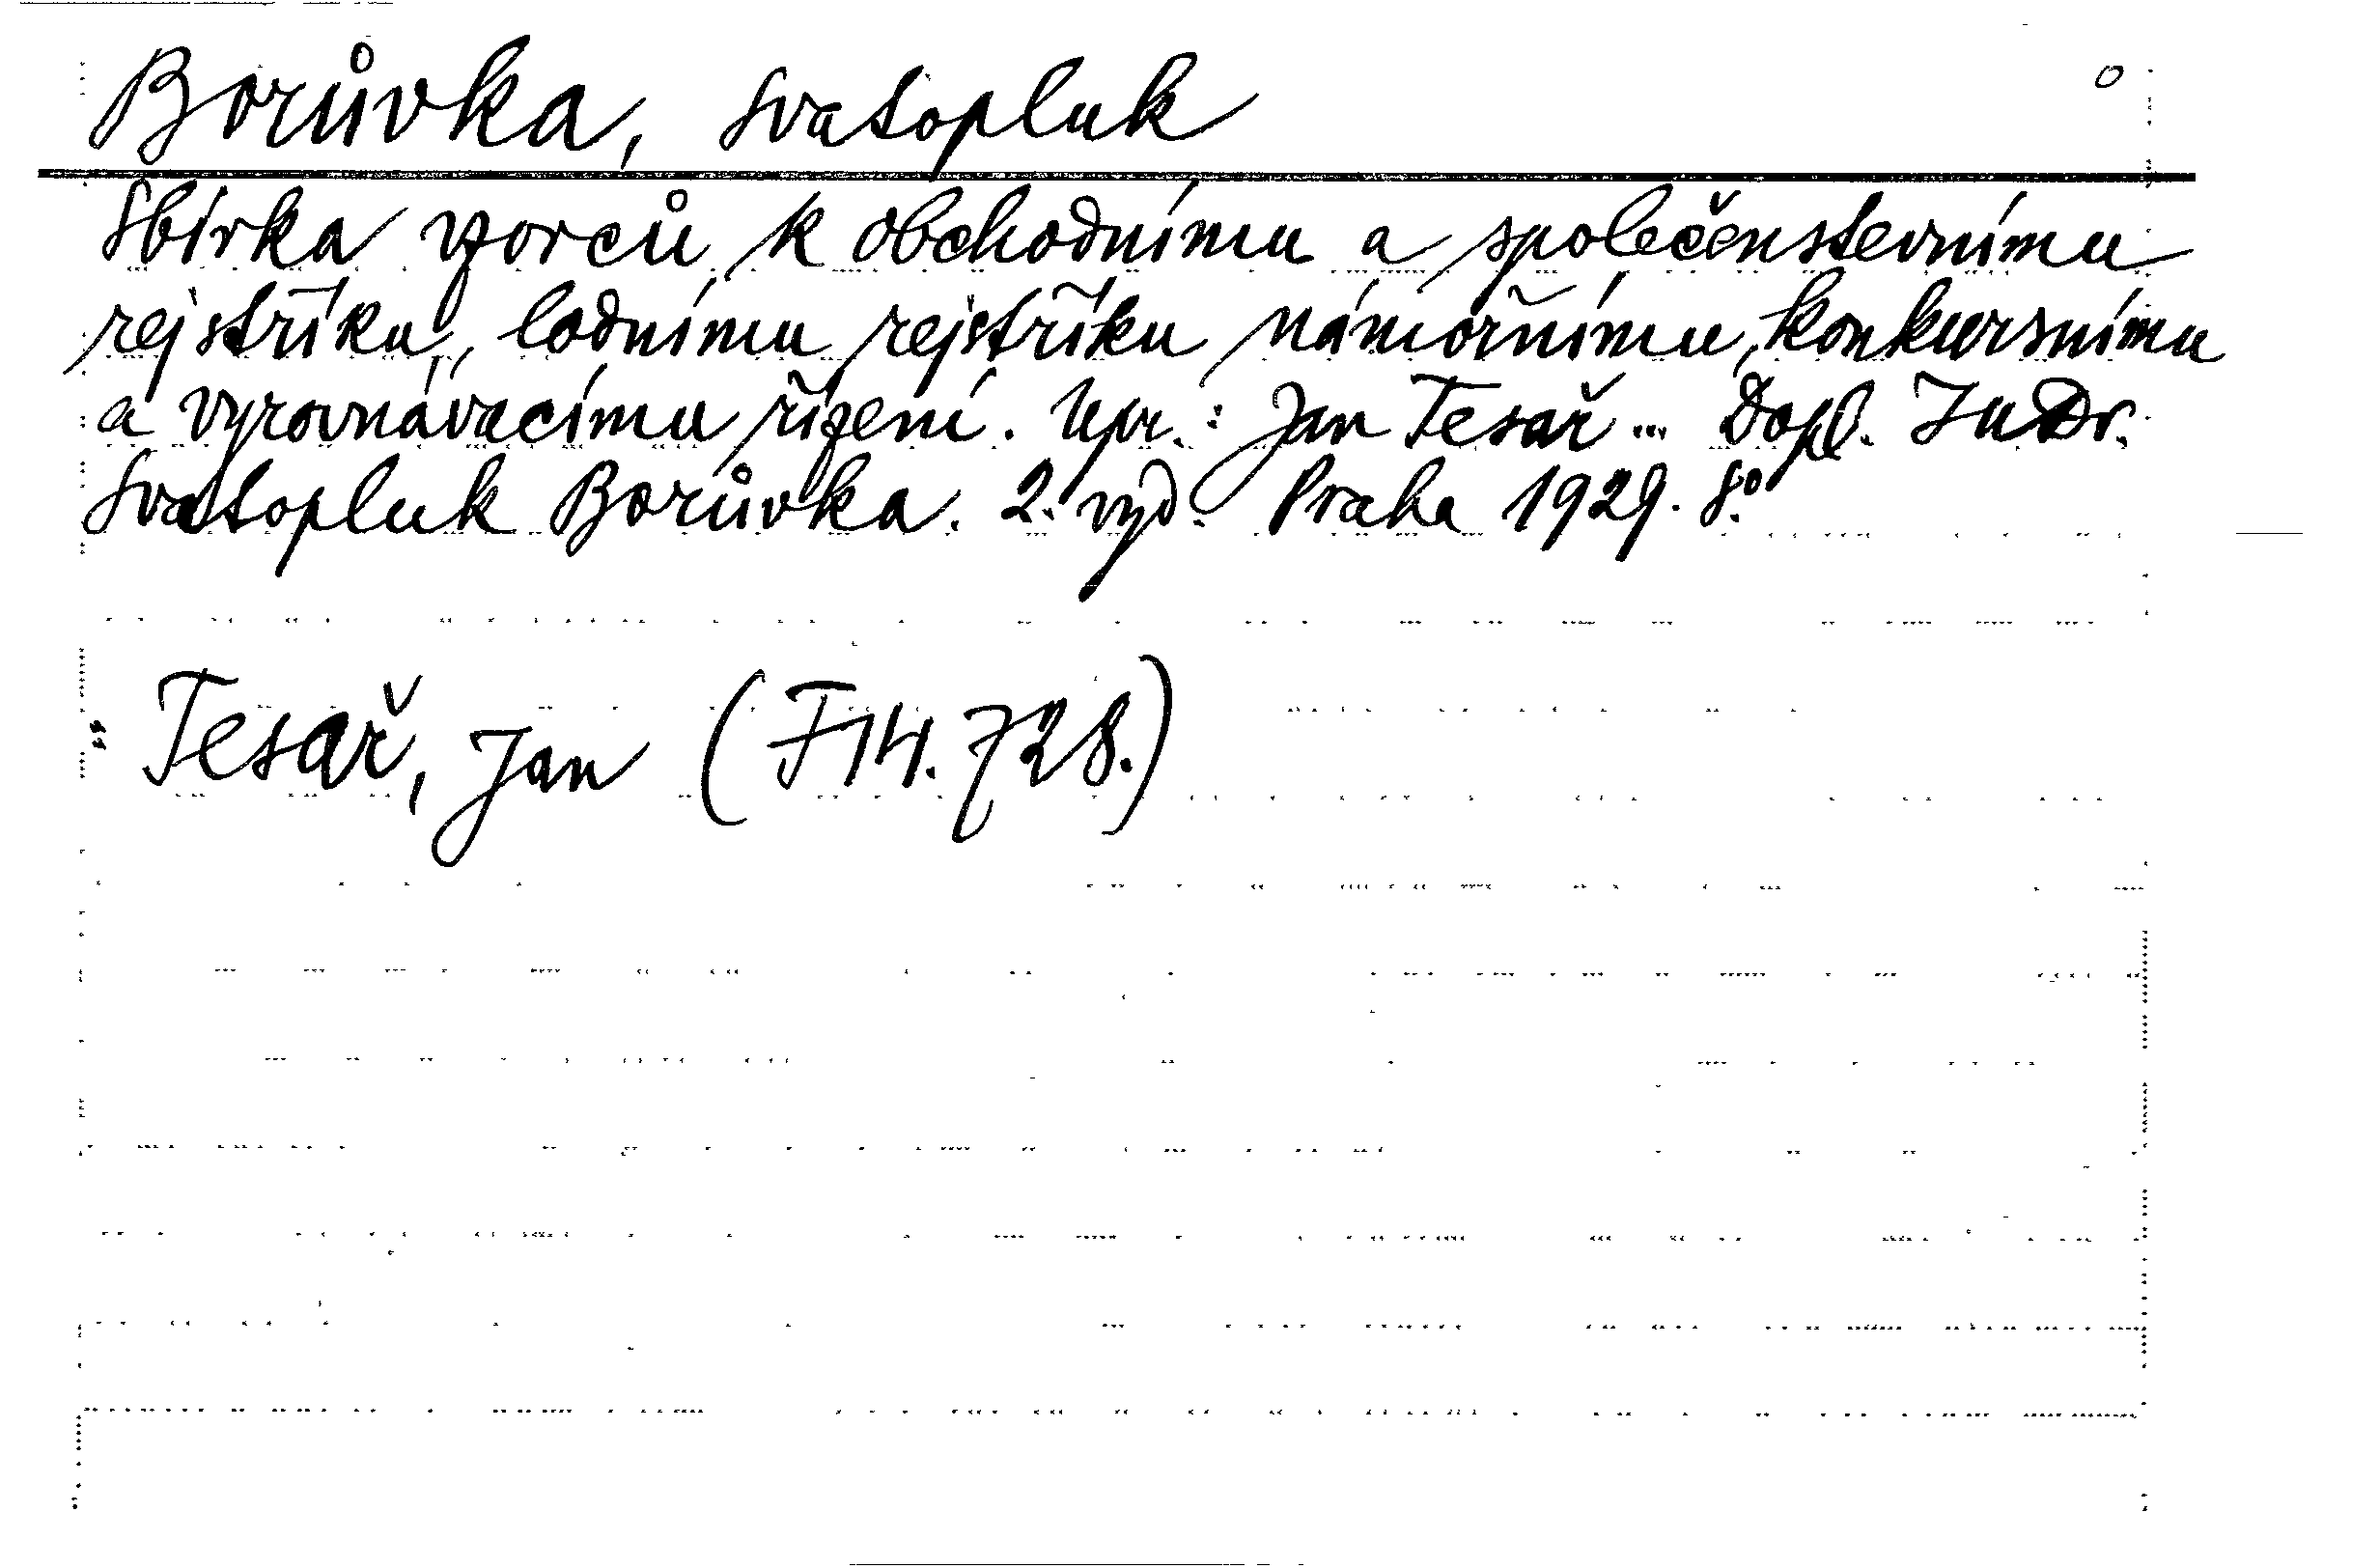 Borůvka, Svatopluk
Sbírka vzorců k obchodnímu a společenstevnímu
rejstříku, lodnímu rejstříku námořnímu, konkursnímu
a vyrovnávacímu řízení. Upr.: Jan Tesař... Dopl. JuDr.
Svatopluk Borůvka. 2. vyd. Praha 1929. 8.º
Tesař, Jan (F 14.728.)